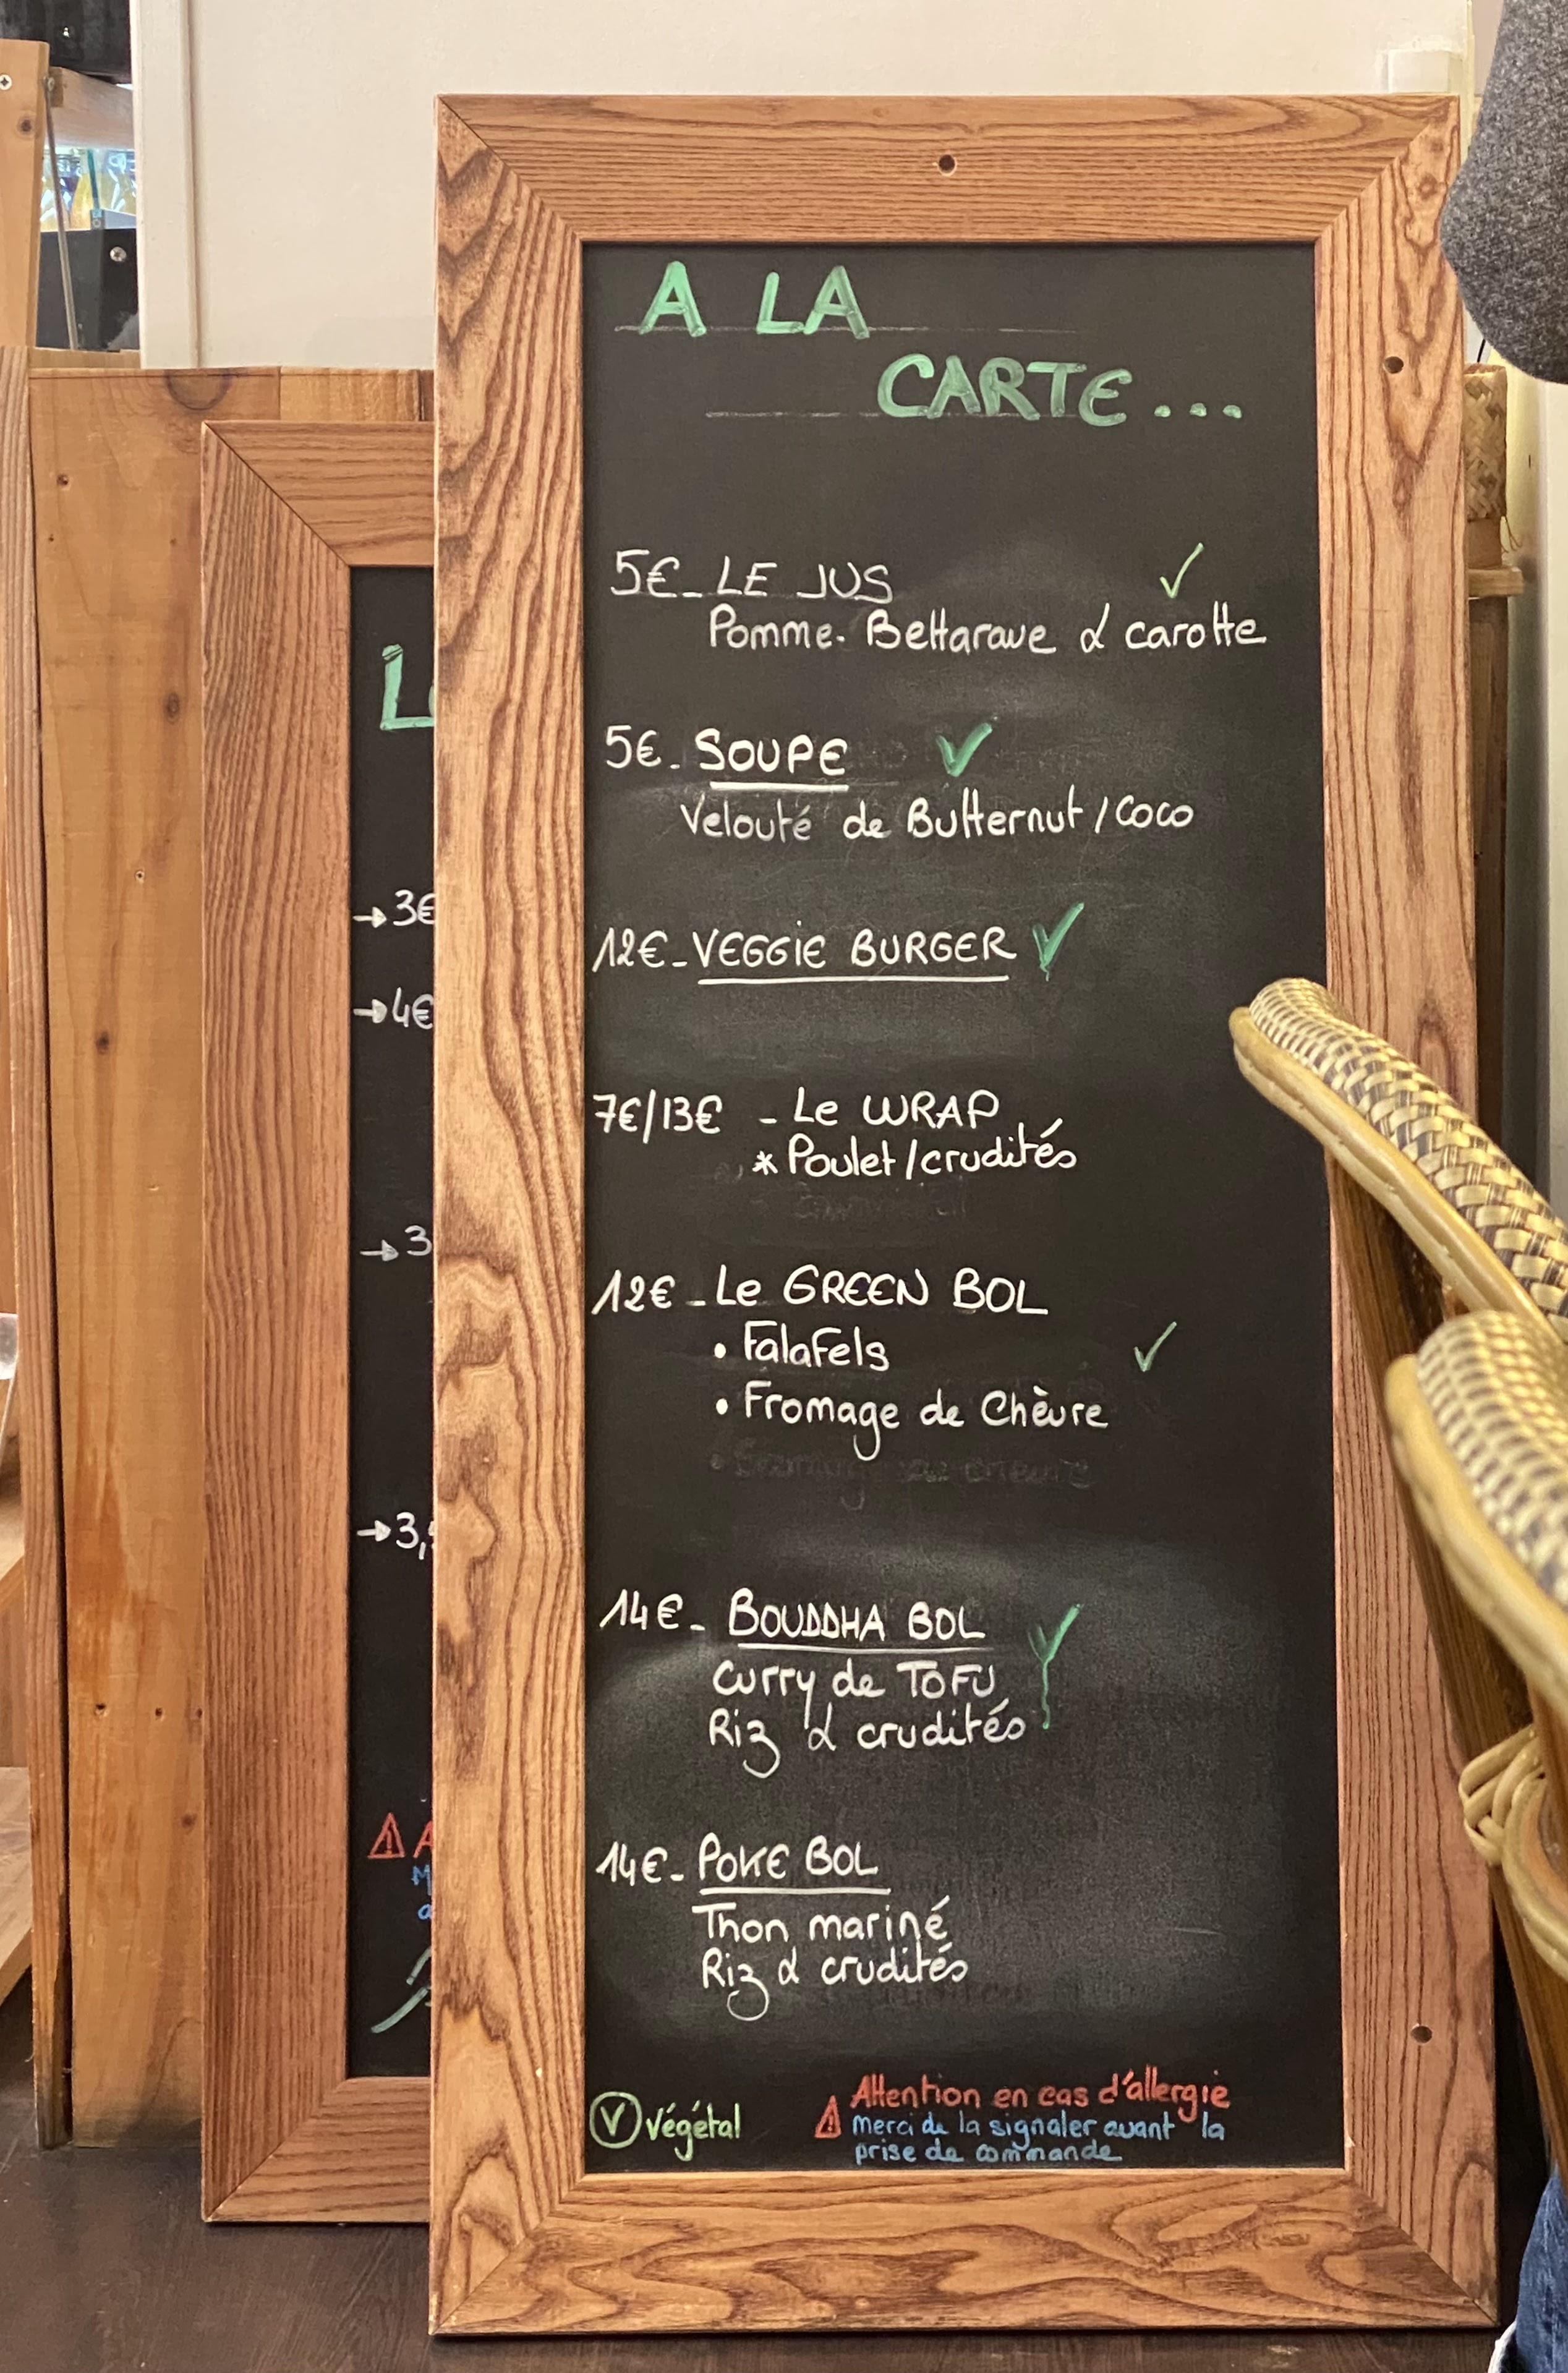 A LA
CARTE...
5€_ LE JUS ✓
Pomme- Bettarave & carotte
5€_ SOUPE V
Velouté de Butternut / coco
12€_ VEGGIE BURGER V
7€/13€ - Le WRAP
* Poulet/crudités
12€_ Le GREEN BOL
• Falafels ✓
• Fromage de Chèvre
14€_ BOUDDHA BOL V
Curry de TOFU
Riz & crudités
14€_ POKE BOL
Thon mariné
Riz & crudités
V végétal
⚠ Attention en cas d'allergie
merci de la signaler avant la
prise de commande
→3€
→4€
→3
→3,
⚠ A
M